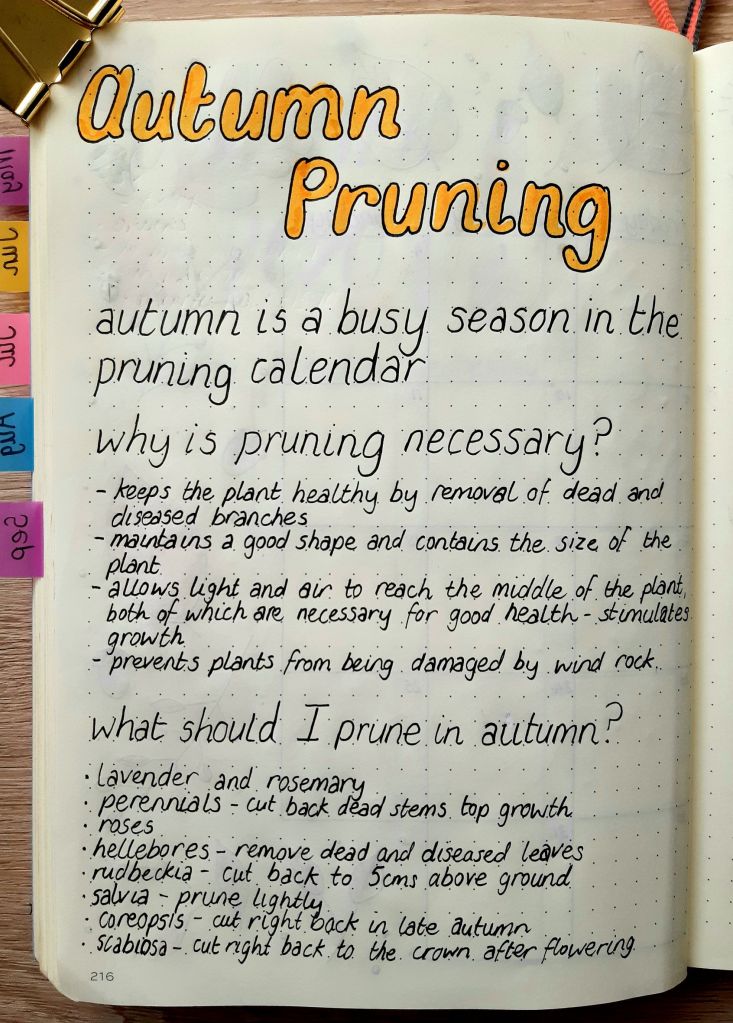 Autumn
Pruning
autumn is a busy season in the
pruning calendar
why is pruning necessary?
- keeps the plant healthy by removal of dead and
diseased branches
- maintains a good shape and contains the size of the
plant
- allows light and air to reach the middle of the plant,
both of which are necessary for good health - stimulates
growth
- prevents plants from being damaged by wind rock.
what should I prune in autumn?
· lavender and rosemary
· perennials - cut back dead stems top growth
· roses
· hellebores - remove dead and diseased leaves
· rudbeckia - cut back to 5cms above ground
· salvia - prune lightly
· coreopsis - cut right back in late autumn
· scabiosa - cut right back to the crown after flowering
216
May
Jun
Jul
Aug
Sep